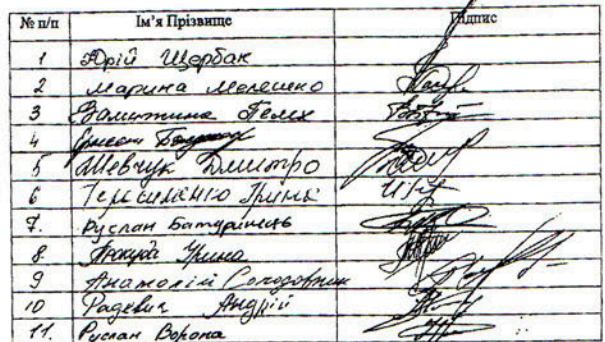 № п/п Ім’я Прізвище Підпис
1 Юрій Щербак
2 Марина Мелешко
3 Валентина Телих
4
5 Шевчук Дмитро
6 Герасименко Ірина
7. Руслан Батуринець
8. Ірина
9 Анатолій Солодовник
10 Радкевич Андрій
11. Руслан Ворона